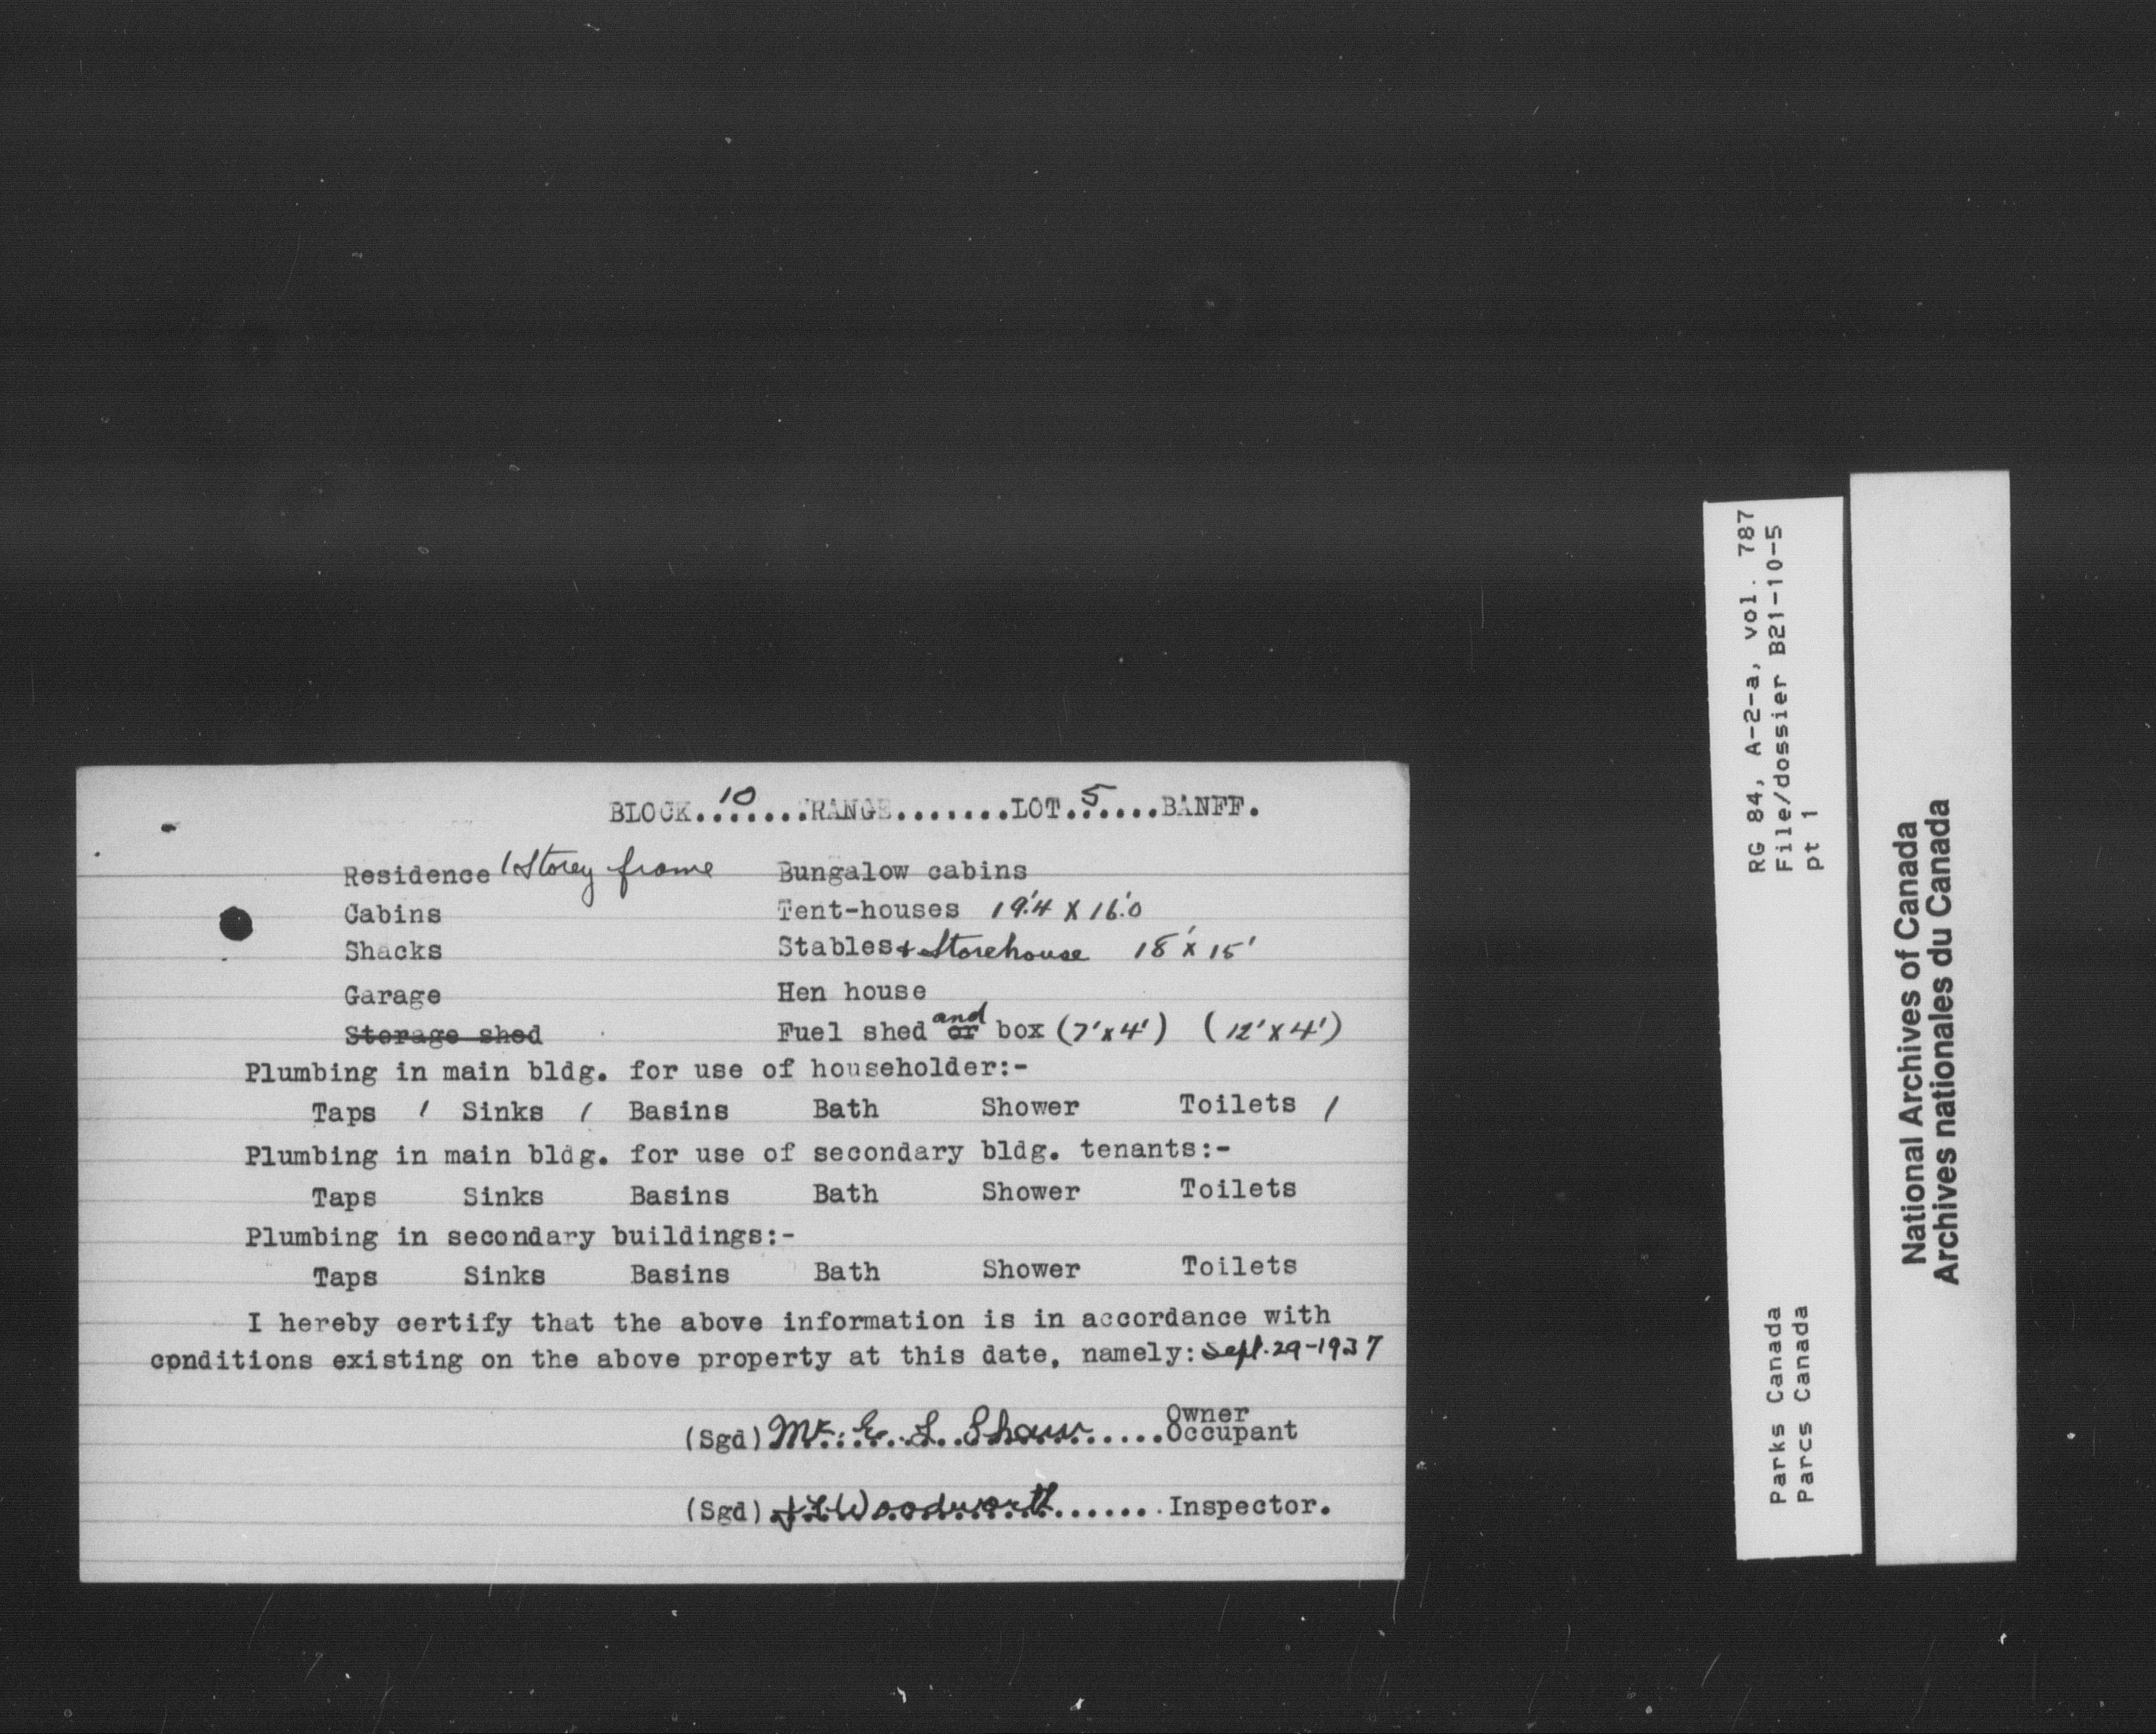 BLOCK...10....RANGE.......LOT.5.....BANFF.
Residence 1 Storey frame Bungalow cabins
Cabins Tent-houses 19'.4 X 16'.0
Shacks Stables & Storehouse 18' X 15'
Garage Hen house
Storage shed Fuel shed or and box (7'x4') (12'x4')
Plumbing in main bldg. for use of householder:-
Taps 1 Sinks 1 Basins Bath Shower Toilets 1
Plumbing in main bldg. for use of secondary bldg. tenants:-
Taps Sinks Basins Bath Shower Toilets
Plumbing in secondary buildings:-
Taps Sinks Basins Bath Shower Toilets
I hereby certify that the above information is in accordance with
conditions existing on the above property at this date, namely: Sept. 29-1937
(Sgd) E. L. Shaw Owner
Occupant
(Sgd) Woodworth Inspector.
RG 84, A-2-a, vol. 787
File/dossier B21-10-5
pt 1
Parks Canada
Parcs Canada
National Archives of Canada
Archives nationales du Canada